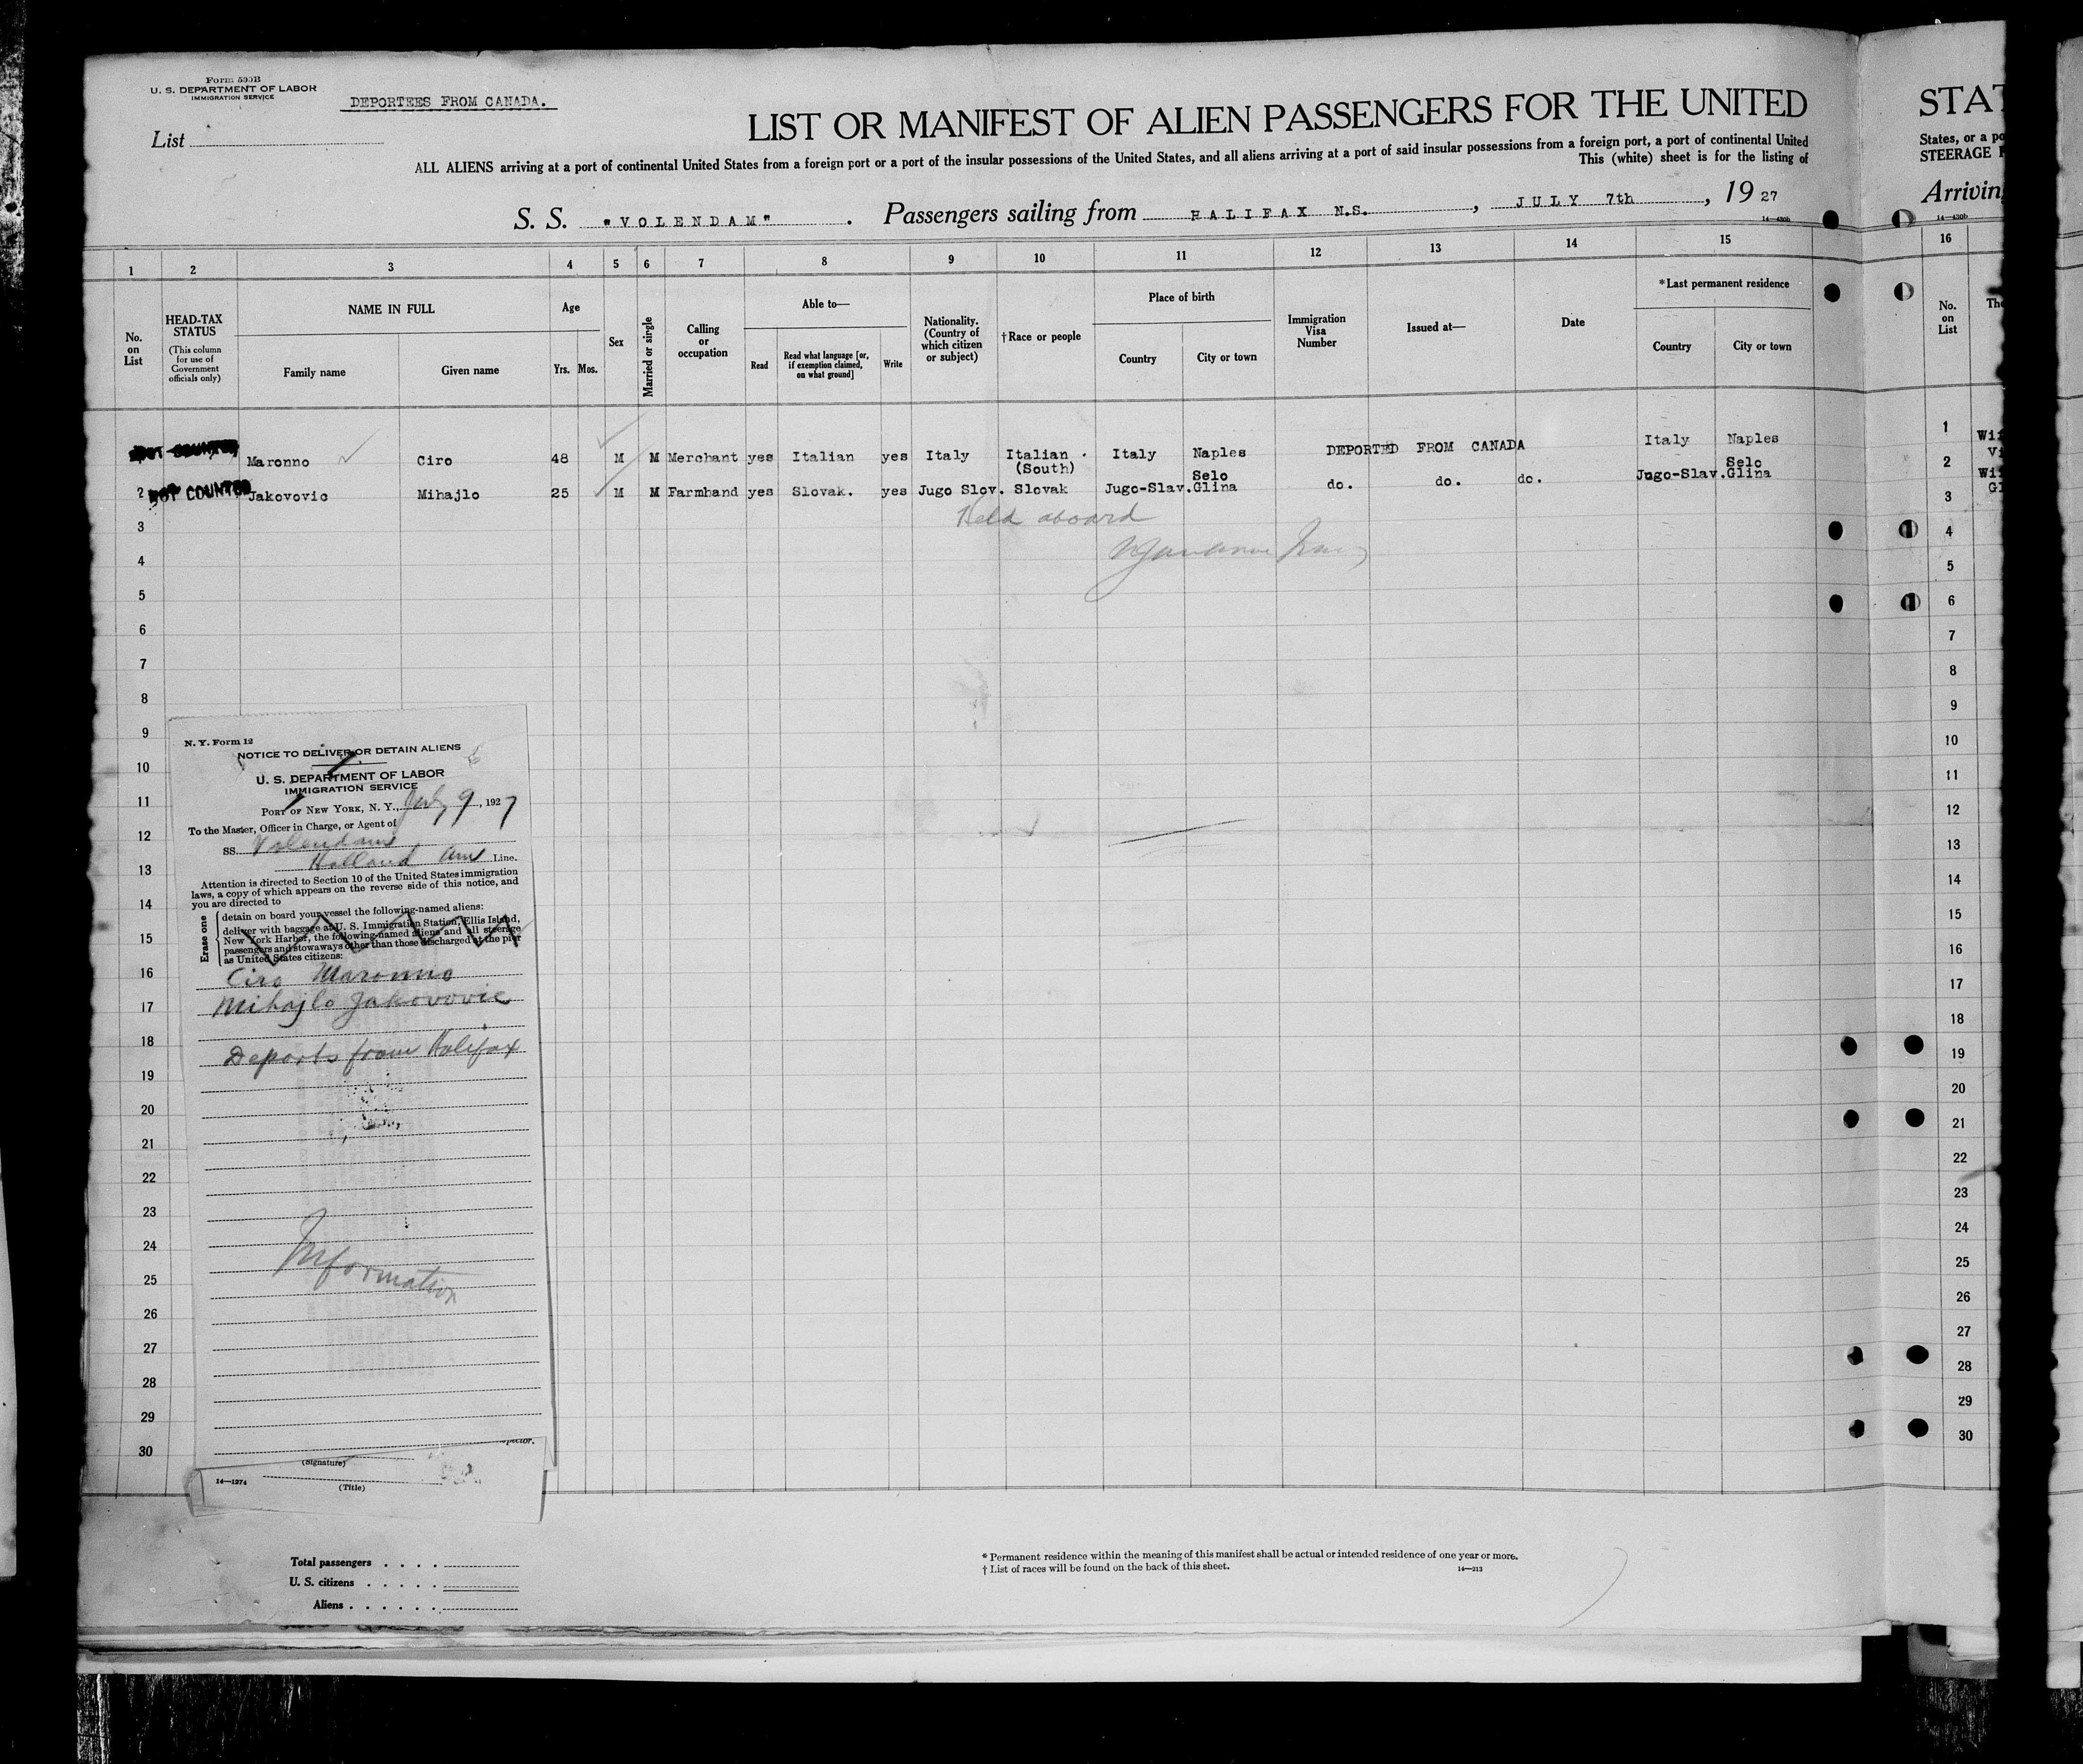 Form 500B
U. S. DEPARTMENT OF LABOR
IMMIGRATION SERVICE
DEPORTEES FROM CANADA.
List
LIST OR MANIFEST OF ALIEN PASSENGERS FOR THE UNITED
ALL ALIENS arriving at a port of continental United States from a foreign port or a port of the insular possessions of the United States, and all aliens arriving at a port of said insular possessions from a foreign port, a port of continental United
This (white) sheet is for the listing of
S. S. "VOLENDAM" . Passengers sailing from HALIFAX N.S. , JULY 7th , 19 27
14—430b
STAT
States, or a po
STEERAGE P
Arriving
14—430b
1 2 3 4 5 6 7 8 9 10 11 12 13 14 15 16
No. on List
HEAD-TAX STATUS
(This column for use of Government officials only)
NAME IN FULL
Family name
Given name
Age
Yrs. Mos.
Sex
Married or single
Calling or occupation
Able to—
Read
Read what language [or, if exemption claimed, on what ground]
Write
Nationality. (Country of which citizen or subject)
†Race or people
Place of birth
Country
City or town
Immigration Visa Number
Issued at—
Date
*Last permanent residence
Country
City or town
No. on List
The
NOT COUNTED Maronno Ciro 48 M M Merchant yes Italian yes Italy Italian (South) Italy Naples DEPORTED FROM CANADA Italy Naples
2 NOT COUNTED Jakovovic Mihajlo 25 M M Farmhand yes Slovak. yes Jugo Slov. Slovak Jugo-Slav. Selo Glina do. do. do. Jugo-Slav. Selo Glina
Held aboard
3
4
5
6
7
8
9
10
11
12
13
14
15
16
17
18
19
20
21
22
23
24
25
26
27
28
29
30
N. Y. Form 12
NOTICE TO DELIVER OR DETAIN ALIENS
U. S. DEPARTMENT OF LABOR
IMMIGRATION SERVICE
PORT OF NEW YORK, N. Y., July 9, 1927
To the Master, Officer in Charge, or Agent of
SS. Volendam
Holland Am Line.
Attention is directed to Section 10 of the United States immigration
laws, a copy of which appears on the reverse side of this notice, and
you are directed to
Erase one
detain on board your vessel the following-named aliens:
deliver with baggage at U. S. Immigration Station, Ellis Island,
New York Harbor, the following-named aliens and all steerage
passengers and stowaways other than those discharged at the pier
as United States citizens:
Ciro Maronno
Mihajlo Jakovovic
Deports from Halifax
Information
pector.
(Signature)
14—1274
(Title)
1
Wif
Vi
2
Wif
Gl
3
4
5
6
7
8
9
10
11
12
13
14
15
16
17
18
19
20
21
22
23
24
25
26
27
28
29
30
Total passengers . . . .
U. S. citizens . . . . .
Aliens . . . . . .
* Permanent residence within the meaning of this manifest shall be actual or intended residence of one year or more.
† List of races will be found on the back of this sheet.
14—213